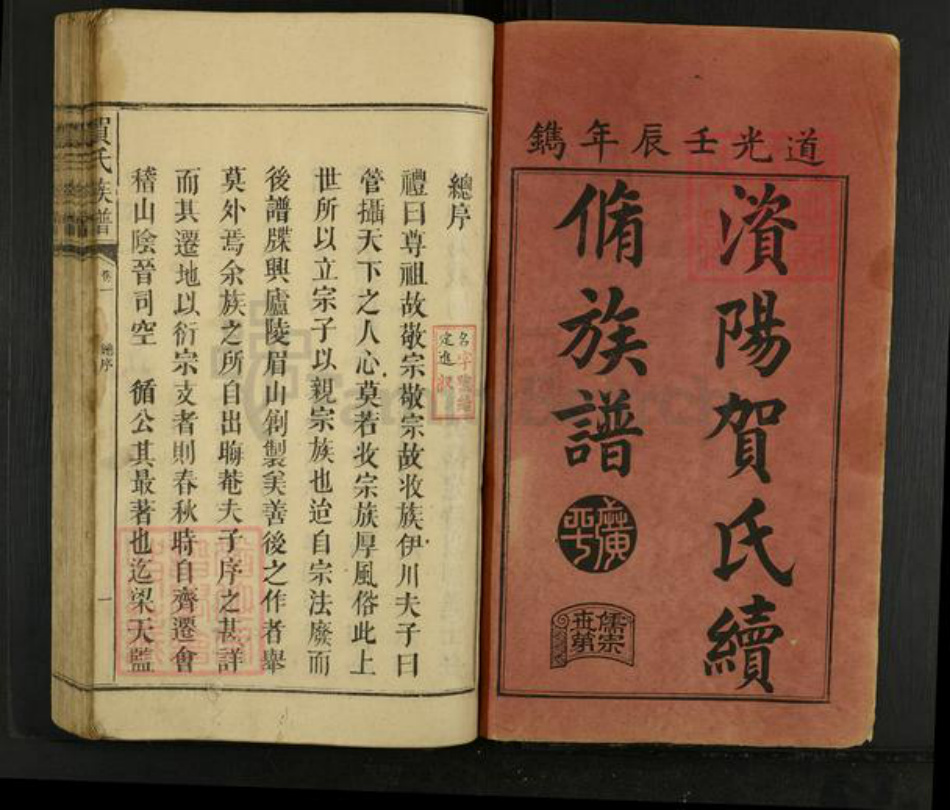 道光壬辰年鐫
濱陽賀氏續
脩族譜
廣平
儒宗
世第
總序
禮曰尊祖故敬宗敬宗故收族伊川夫子曰
管攝天下之人心莫若收宗族厚風俗此上
世所以立宗子以親宗族也迨自宗法廢而
後譜牒興廬陵眉山創製矣善後之作者舉
莫外焉余族之所自出晦菴夫子序之甚詳
而其遷地以衍宗支者則春秋時自齊遷會
稽山陰晉司空 循公其最著也迄梁天監
賀氏族譜
卷一
總序
一